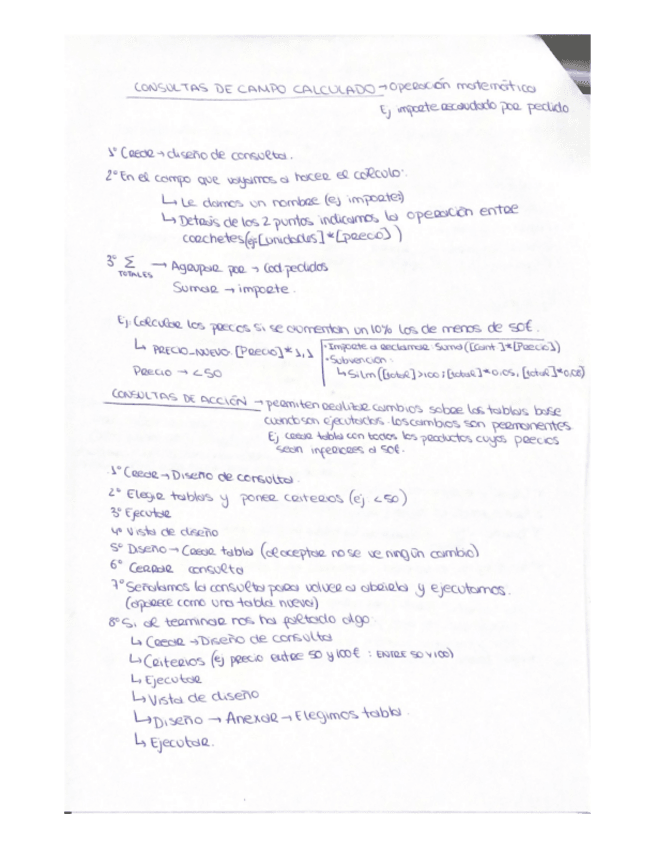 CONSULTAS DE CAMPO CALCULADO → Operación matemática
Ej importe recaudado por pedido
1º Crear → diseño de consulta.
2º En el campo que vayamos a hacer el cálculo:
↳ Le damos un nombre (ej importe)
↳ Detrás de los 2 puntos indicamos la operación entre
corchetes (ej: [unidades] * [precio])
3º Σ TOTALES → Agrupar por → Cod pedidos
Sumar → importe.
Ej Calcular los precios si se aumentan un 10% los de menos de 50€.
↳ PRECIO_NUEVO: [Precio] * 1,1
Precio → <50
· Importe a reclamar: Suma([Cant]*[Precio])
· Subvención:
↳ SiIm([total]>100; [total]*0,05, [total]*0,02)
CONSULTAS DE ACCIÓN → permiten realizar cambios sobre las tablas base
cuando son ejecutados. Los cambios son permanentes
Ej crear tabla con todos los productos cuyos precios
sean inferiores a 50€.
1º Crear → Diseño de consulta.
2º Elegir tablas y poner criterios (ej <50)
3º Ejecutar
4º Vista de diseño
5º Diseño → Crear tabla (al aceptar no se ve ningún cambio)
6º Cerrar consulta
7º Señalamos la consulta para volver a abrirla y ejecutamos.
(aparece como una tabla nueva)
8º Si al terminar nos ha faltado algo:
↳ Crear → Diseño de consulta
↳ Criterios (Ej precio entre 50 y 100€ : ENTRE 50 Y 100)
↳ Ejecutar
↳ Vista de diseño
↳ Diseño → Anexar → Elegimos tabla.
↳ Ejecutar.